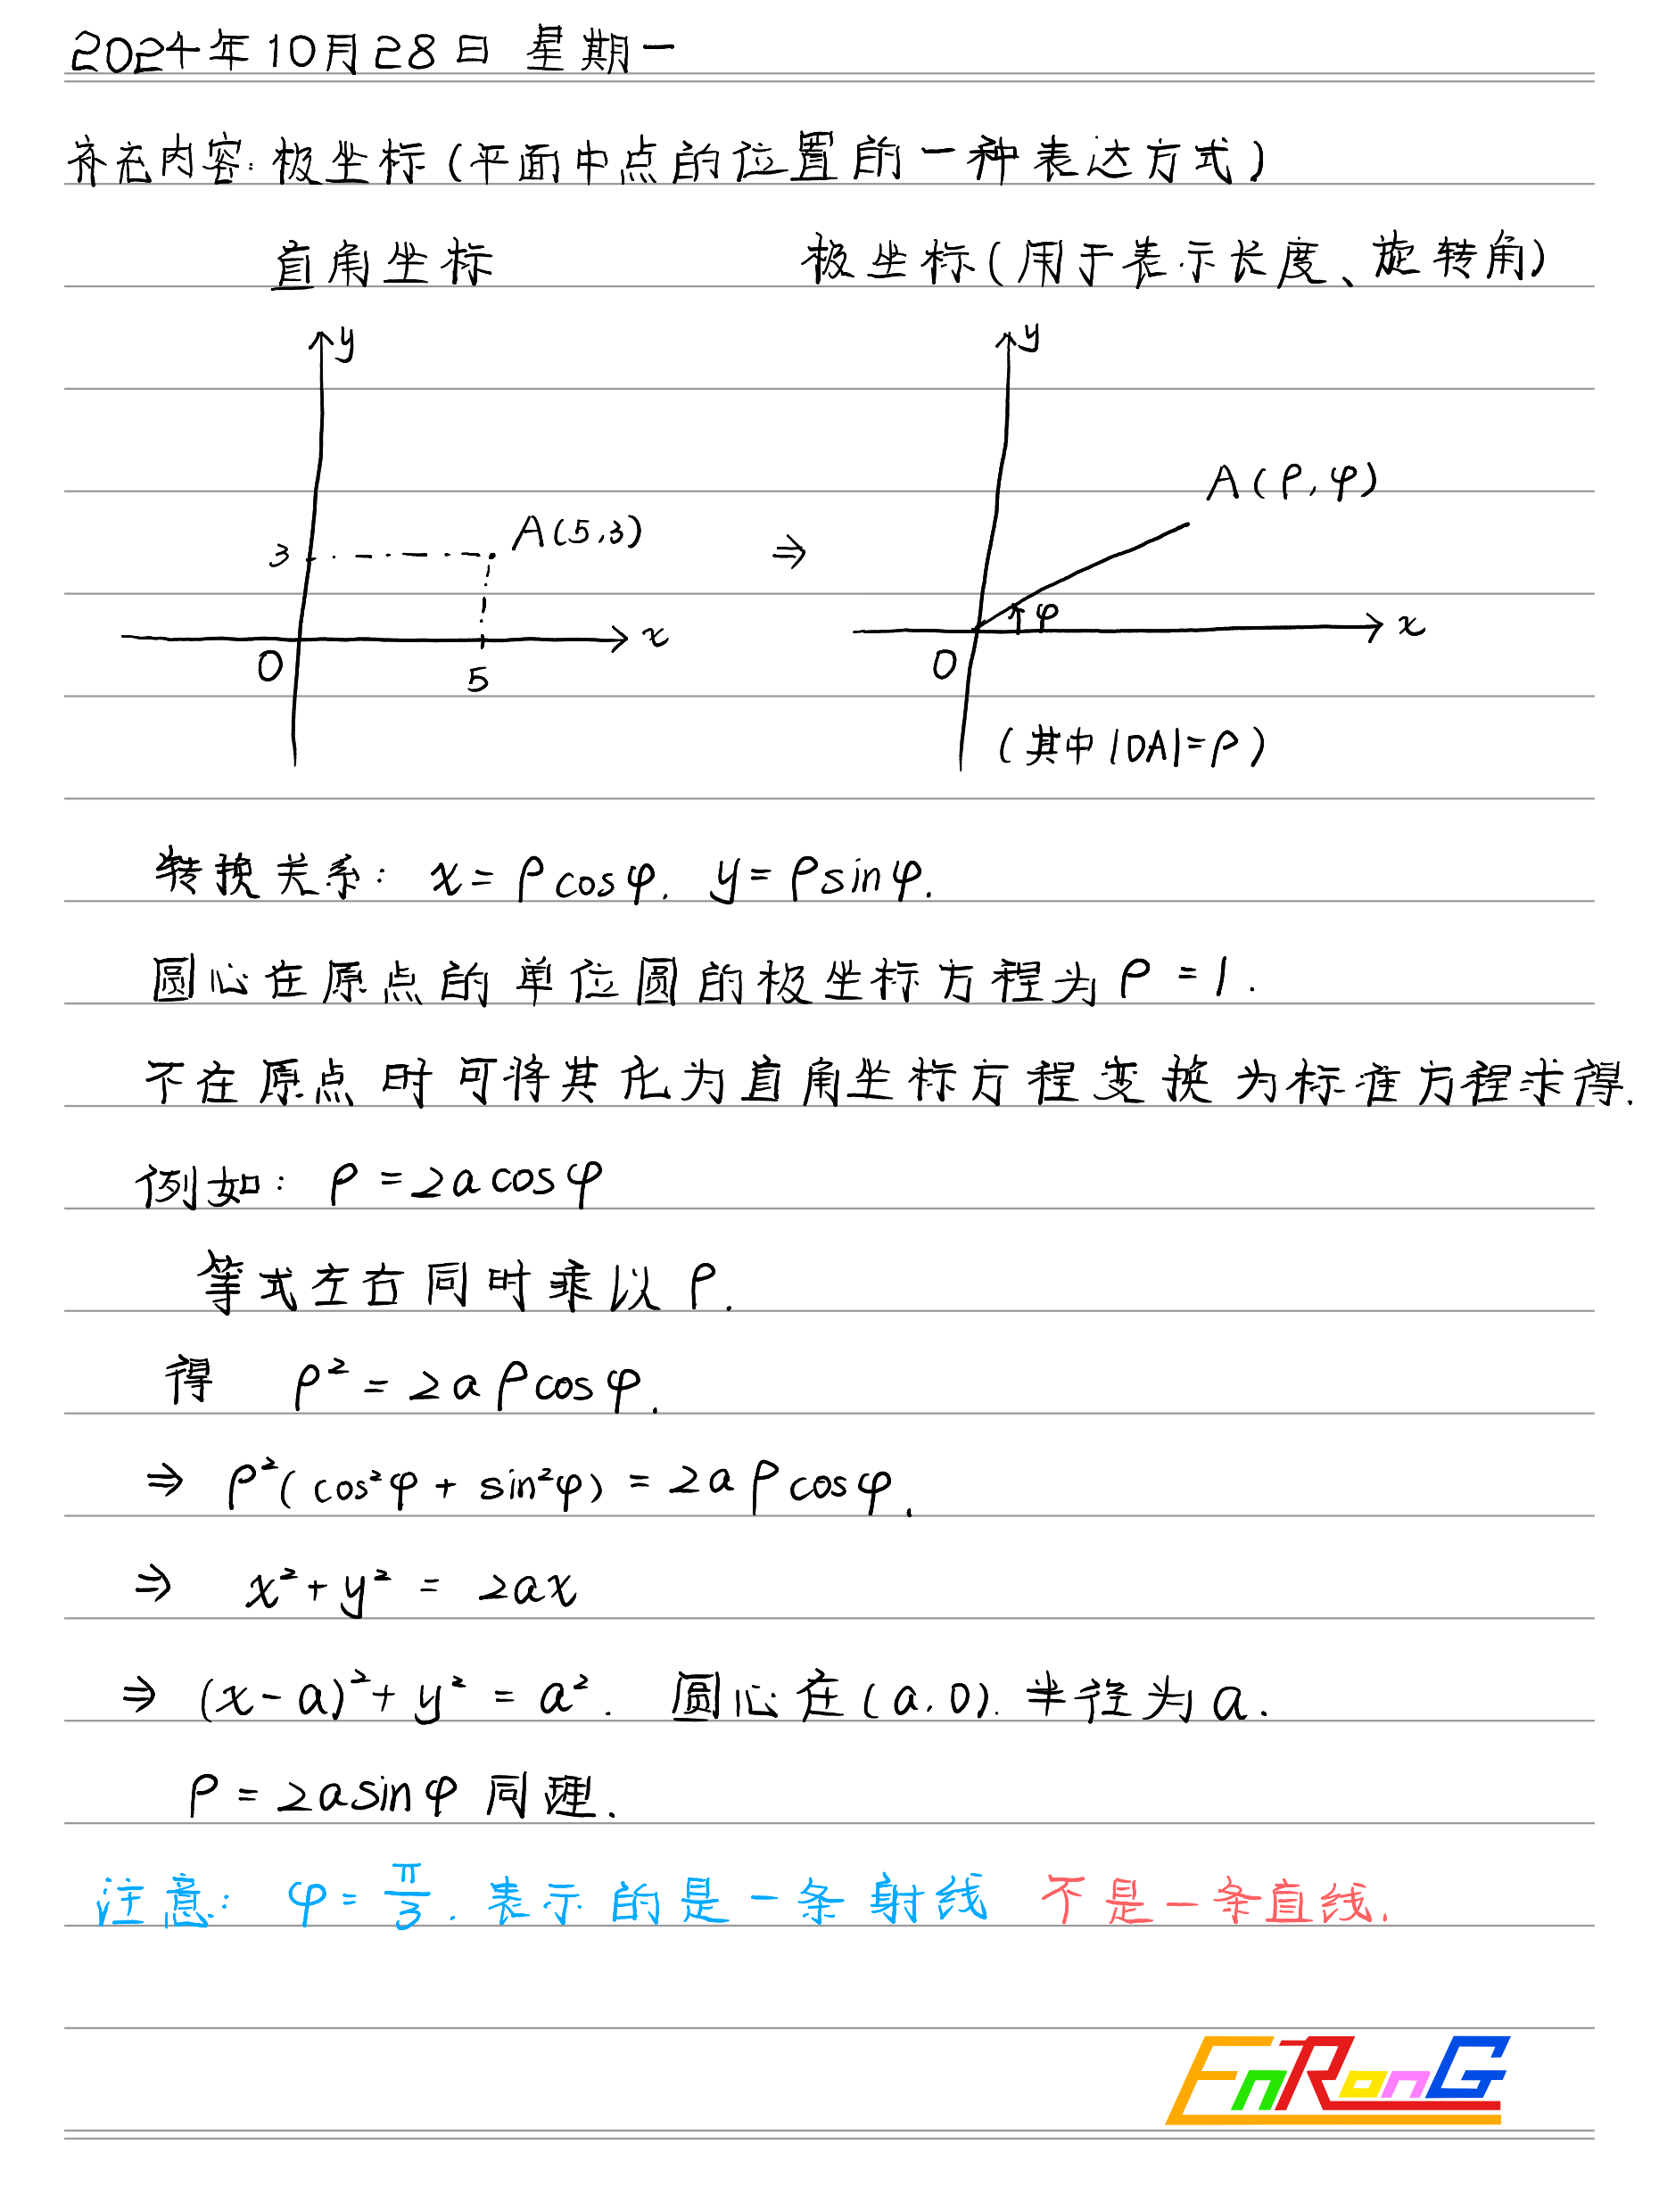 2024年10月28日 星期一
补充内容:极坐标(平面中点的位置的一种表达方式)
直角坐标 极坐标(用于表示长度、旋转角)
y y
A(ρ,φ)
3 A(5,3) ⇒
φ
x x
O 5 O
(其中|OA|=ρ)
转换关系: x=ρcosφ. y=ρsinφ.
圆心在原点的单位圆的极坐标方程为ρ=1.
不在原点时可将其化为直角坐标方程变换为标准方程求得.
例如: ρ=2acosφ
等式左右同时乘以ρ.
得 ρ²=2aρcosφ.
⇒ ρ²(cos²φ+sin²φ)=2aρcosφ.
⇒ x²+y²=2ax
⇒ (x-a)²+y²=a². 圆心在(a,0).半径为a.
ρ=2asinφ同理.
注意: φ=π/3.表示的是一条射线 不是一条直线.
EnRonG